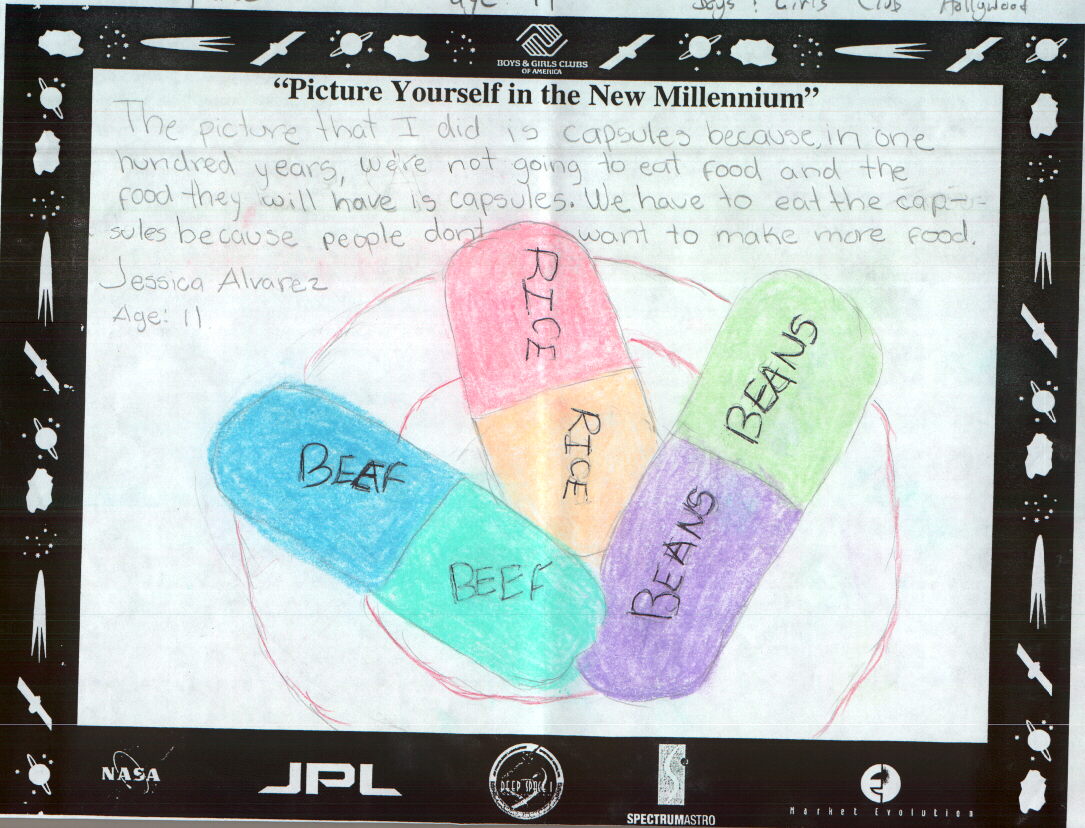 Boys & Girls Club Hollywood
BOYS & GIRLS CLUBS
OF AMERICA
“Picture Yourself in the New Millennium”
The picture that I did is capsules because, in one
hundred years, we're not going to eat food and the
food they will have is capsules. We have to eat the cap-
sules because people dont want to make more food.
Jessica Alvarez
Age: 11
RICE
RICE
BEANS
BEANS
BEEF
BEEF
NASA
JPL
DEEP SPACE 1
SPECTRUMASTRO
Market Evolution